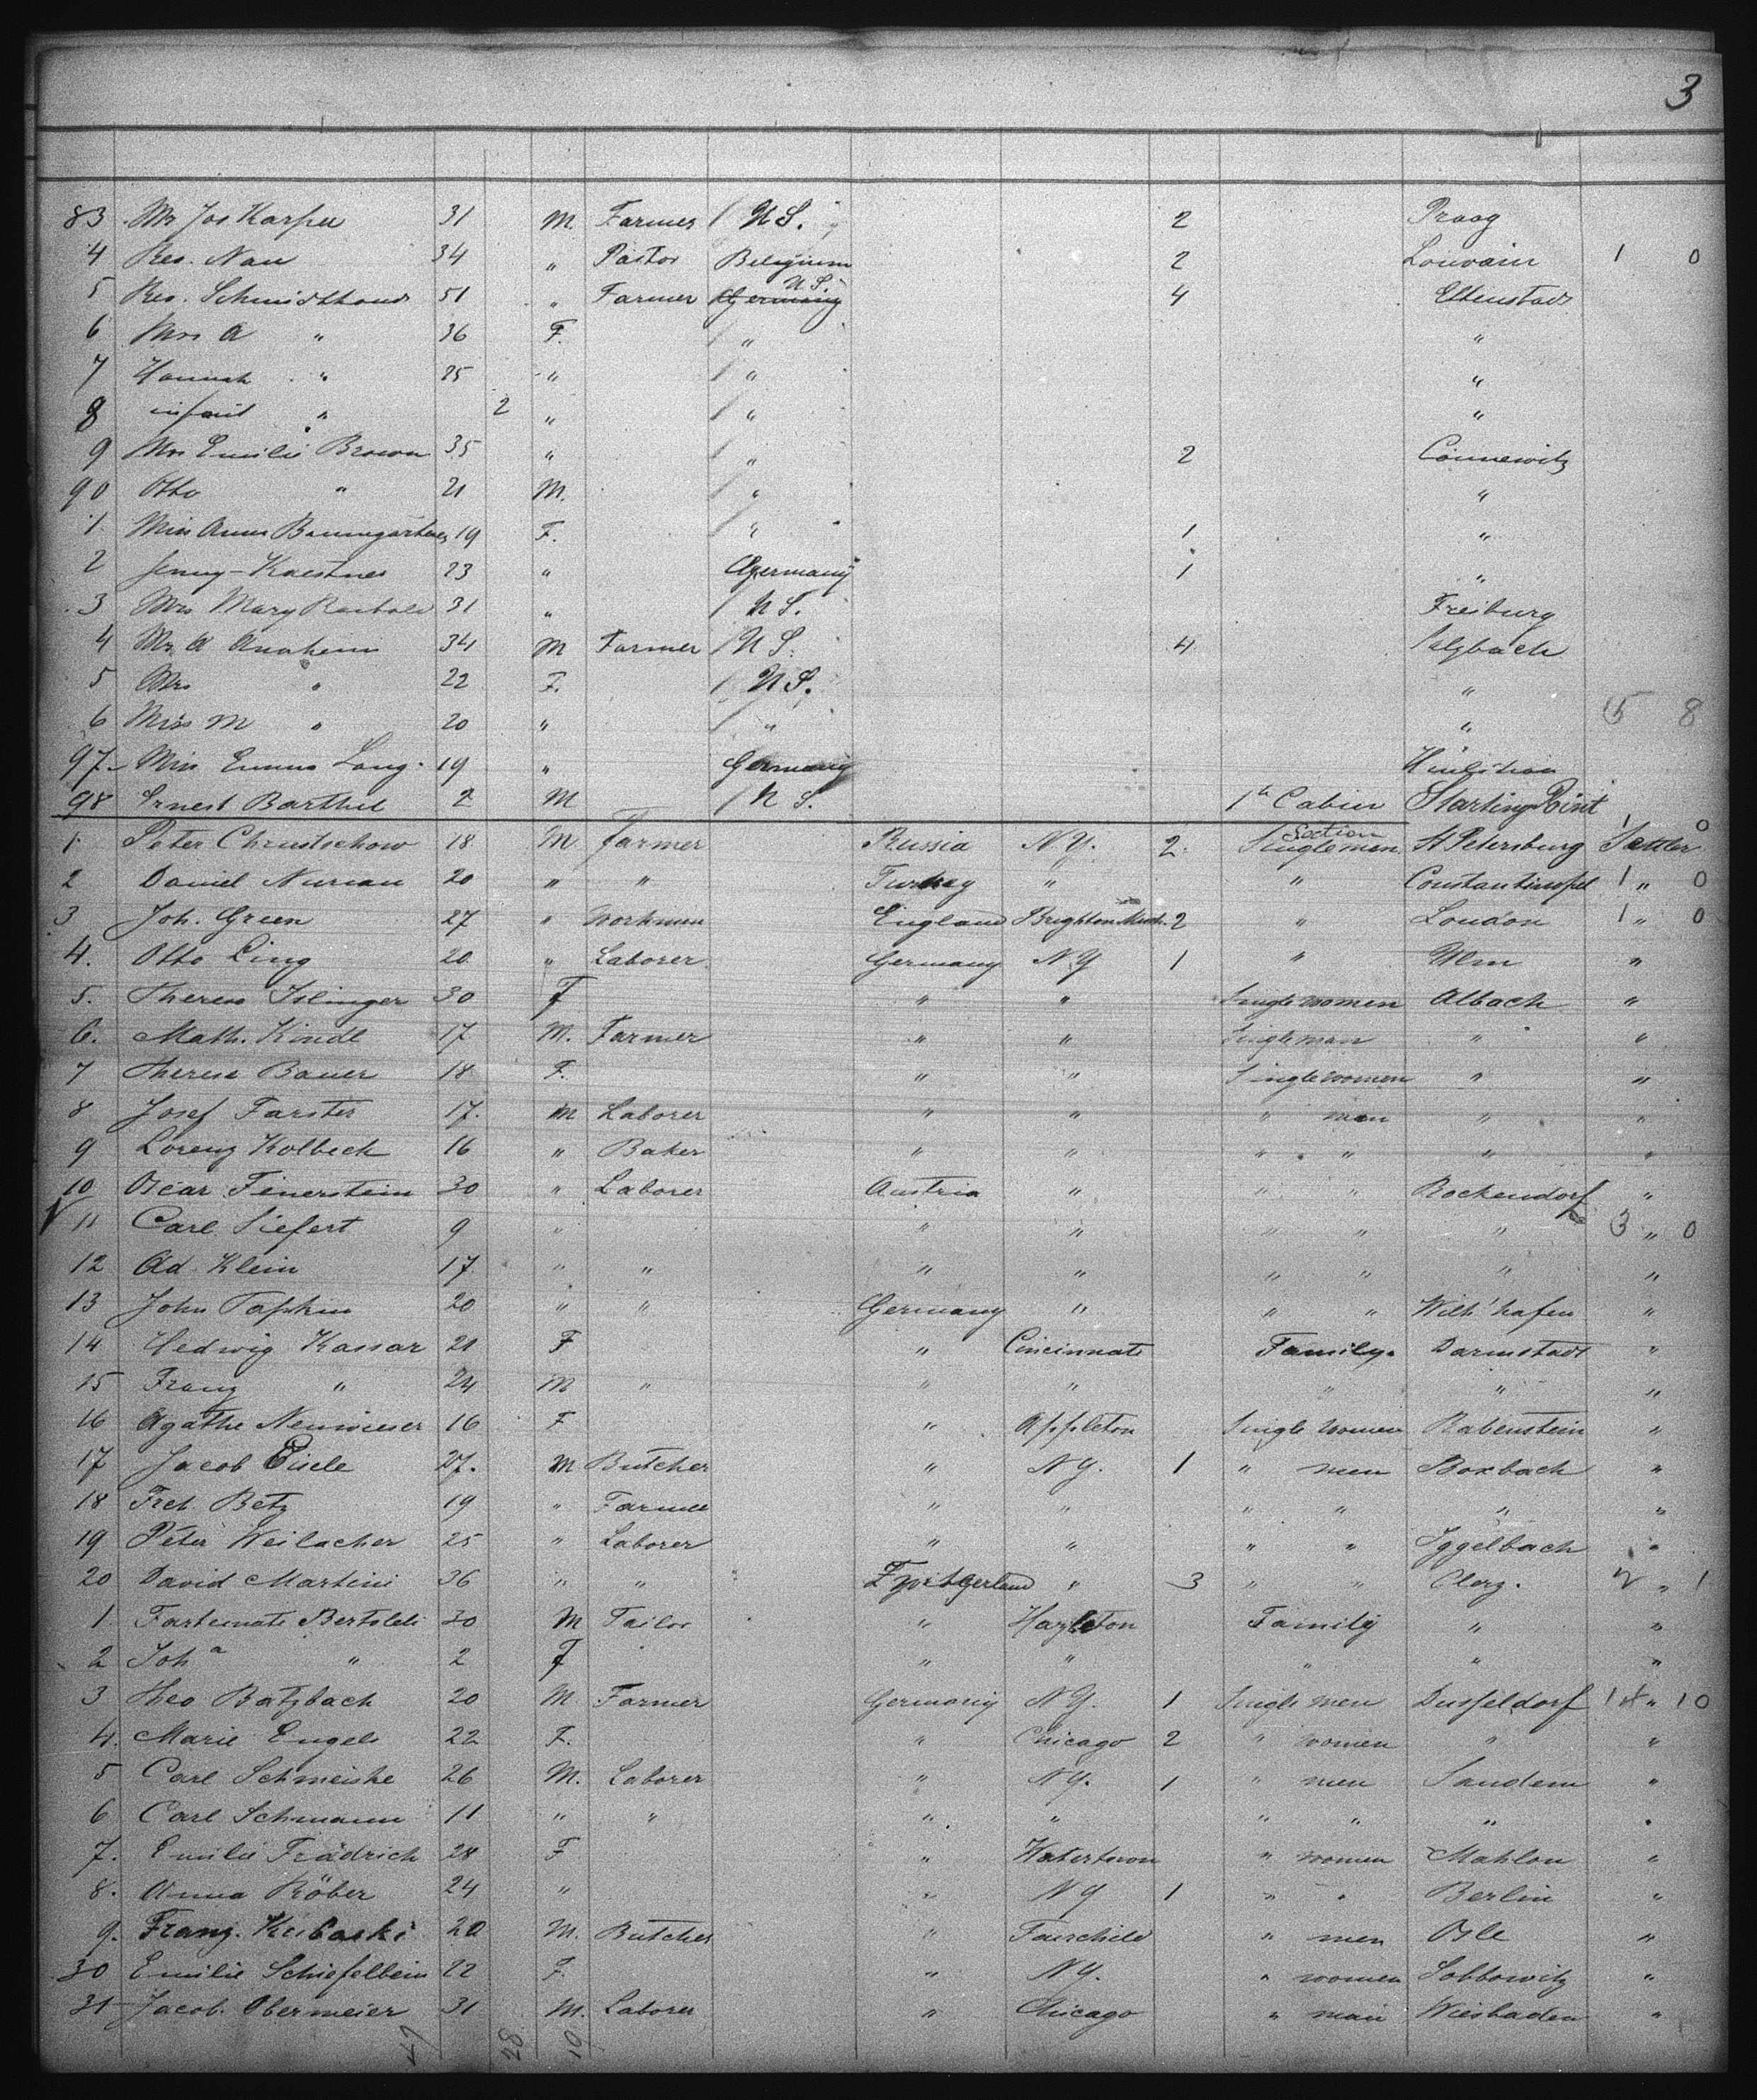 3
83 Mr Jos Karper 31 M. Farmer / U S. 2 Praag
4 Rev. Nau 34 " Pastor Belgium 2 Louvain 1 0
5 Rev. 51 " Farmer Germany U.S. 4 Ettenstadt
6 Mrs A " 36 F. / " "
7 Hannah " 25 " / " "
8 infant " 2 " / " "
9 Mrs Emilie Brown 35 " / " 2 Connewitz
90 Otto " 21 M. / " "
1 Miss Anna Baumgartner 19 F. / " 1 "
2 Jenny - Kaestner 23 " Germany 1 "
3 Mrs Mary 31 " / U S. Freiburg
4 Mr A Anaheim 34 M Farmer / U S. 4
5 Mrs " 22 F. / U S. "
6 Miss M " 20 " / " " 8
97 Miss Emma Lang 19 " Germany
98 Ernest Barthel 2 M / U S. 1th Cabin Starting Point
1 Peter Chrustschow 18 M Farmer Russia N.Y. 2 Section Single men St Petersburg Settler 1 0
2 Daniel Nurian 20 " " Turkey " " Constantinopel 1 " 0
3 Joh. Green 27 " Workman England Brighton Mich. 2 " London 1 " 0
4. Otto Ling 20 " Laborer Germany N.Y 1 " Ulm "
5. Therese Islinger 30 F " " Single women Albach "
6. Math. Kindl 17 M. Farmer " " Single man " "
7 Therese Bauer 18 F. " " Single women " "
8 Josef Farster 17. M Laborer " " " man " "
9 Lorenz Kolbeck 16 " Baker " " " " " "
10 Oscar Feuerstein 30 " Laborer Austria " " " Rockendorf "
11 Carl Siefert 9 " " " " " " 3 " 0
12 Ad. Klein 17 " " " " " " " "
13 John Tapkin 20 " " Germany " " " Wilh'hafen "
14 Hedwig Kassar 21 F " Cincinnati Family Darmstadt "
15 Franz " 24 M " " " " " "
16 Agathe Neuwieser 16 F " Appleton Single women Rabenstein "
17 Jacob Eisele 27. M Butcher " N.Y. 1 " men Boxbach "
18 Frd. Betz 19 " Farmer " " " " " "
19 Peter Weilacher 25 " Laborer " " " " Iggelbach "
20 David Martini 36 " " Switzerland " 3 " " Clerg. 2 " 1
1 Fortunato Bertoldi 30 M Tailor " Hazleton Family " "
2 Joha " 2 F " " " " "
3 Theo Batzbach 20 M. Farmer Germany N.Y. 1 Single men Dusseldorf 1 " 10
4. Marie Engels 22 F. " Chicago 2 " women " "
5 Carl Schmeiske 26 M. Laborer " N.Y. 1 " men Sandem "
6 Carl Schmann 11 " " " " " " " "
7. Emilie Frädrich 28 F " Watertown " women Mahlon "
8. Anna Röber 24 " " N Y 1 " " Berlin "
9. Franz. Kubaski 20 M. Butcher " Fairchild " men Osle "
30 Emilie Schiefelbein 22 F. " N.Y. " women Sobbowitz "
31 Jacob. Obermeier 31 M. Laborer " Chicago " man Wiesbaden "
28 19